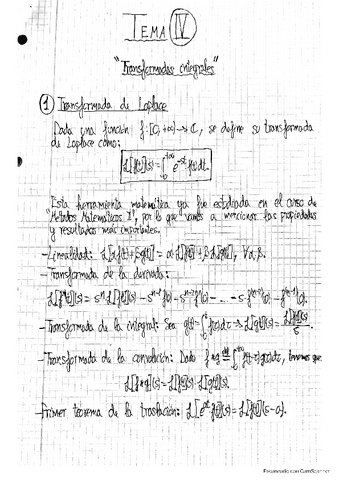 TEMA IV
"Transformadas integrales"
① Transformada de Laplace
Dada una función f:[0,+∞)→ℂ, se define su transformada
de Laplace como:
ℒ[f(t)](s)=∫₀^{+∞} e^{-st} f(t)dt.
Esta herramienta matemática ya fue estudiada en el curso de
"Métodos Matemáticos I", por lo que vamos a mencionar las propiedades
y resultados más importantes.
-Linealidad: ℒ[αf(t)+βg(t)] = αℒ[f(t)]+βℒ[g(t)], ∀α,β.
-Transformada de la derivada:
ℒ[fⁿ(t)](s)=sⁿℒ[f(t)](s)-sⁿ⁻¹f(0)-sⁿ⁻²f'(0)-...-s·f⁽ⁿ⁻²⁾(0)-f⁽ⁿ⁻¹⁾(0).
-Transformada de la integral: Sea g(t)=∫₀ᵗ f(τ)dτ → ℒ[g(t)](s)=ℒ[f(t)](s)/s.
-Transformada de la convolución: Dado f*g ≝ ∫₀^{+∞} f(t-τ)g(τ)dτ, tenemos que
ℒ[f*g](s)=ℒ[f(t)](s)·ℒ[g(t)](s).
-Primer teorema de la traslación: ℒ[e^{at}f(t)](s)=ℒ[f(t)](s-a).
Escaneado con CamScanner